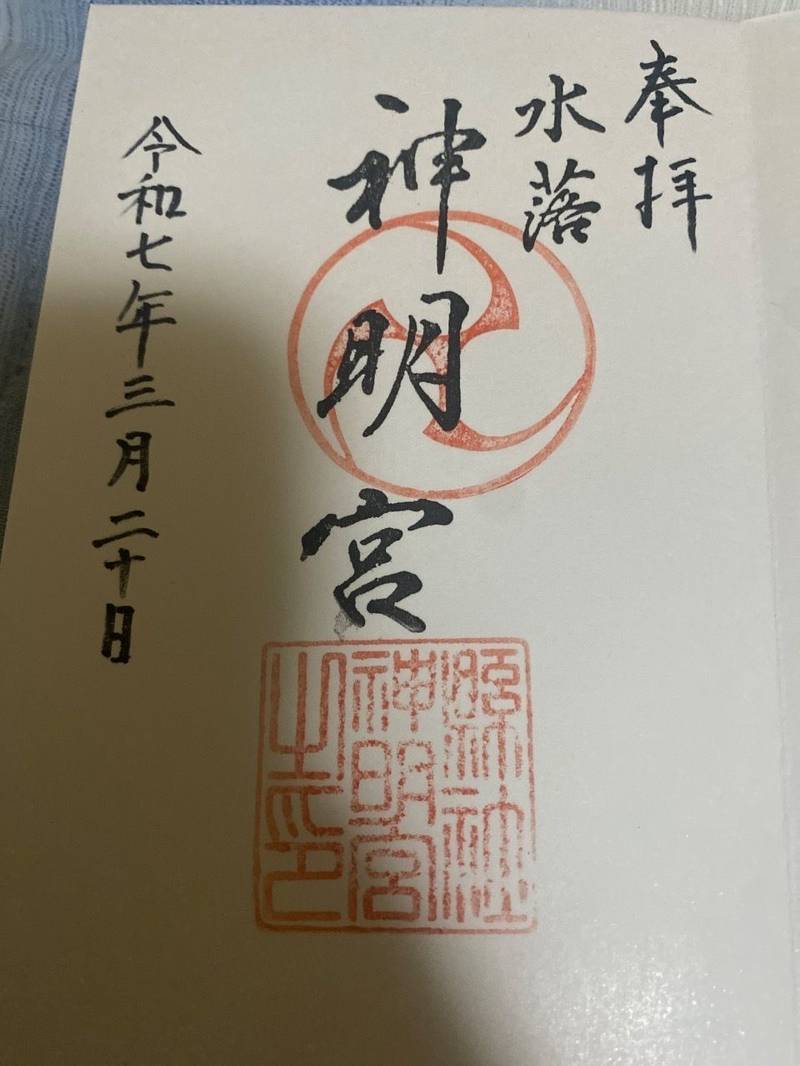 奉拝
水落
神明宮
令和七年三月二十日
縣社
神明宮
之印